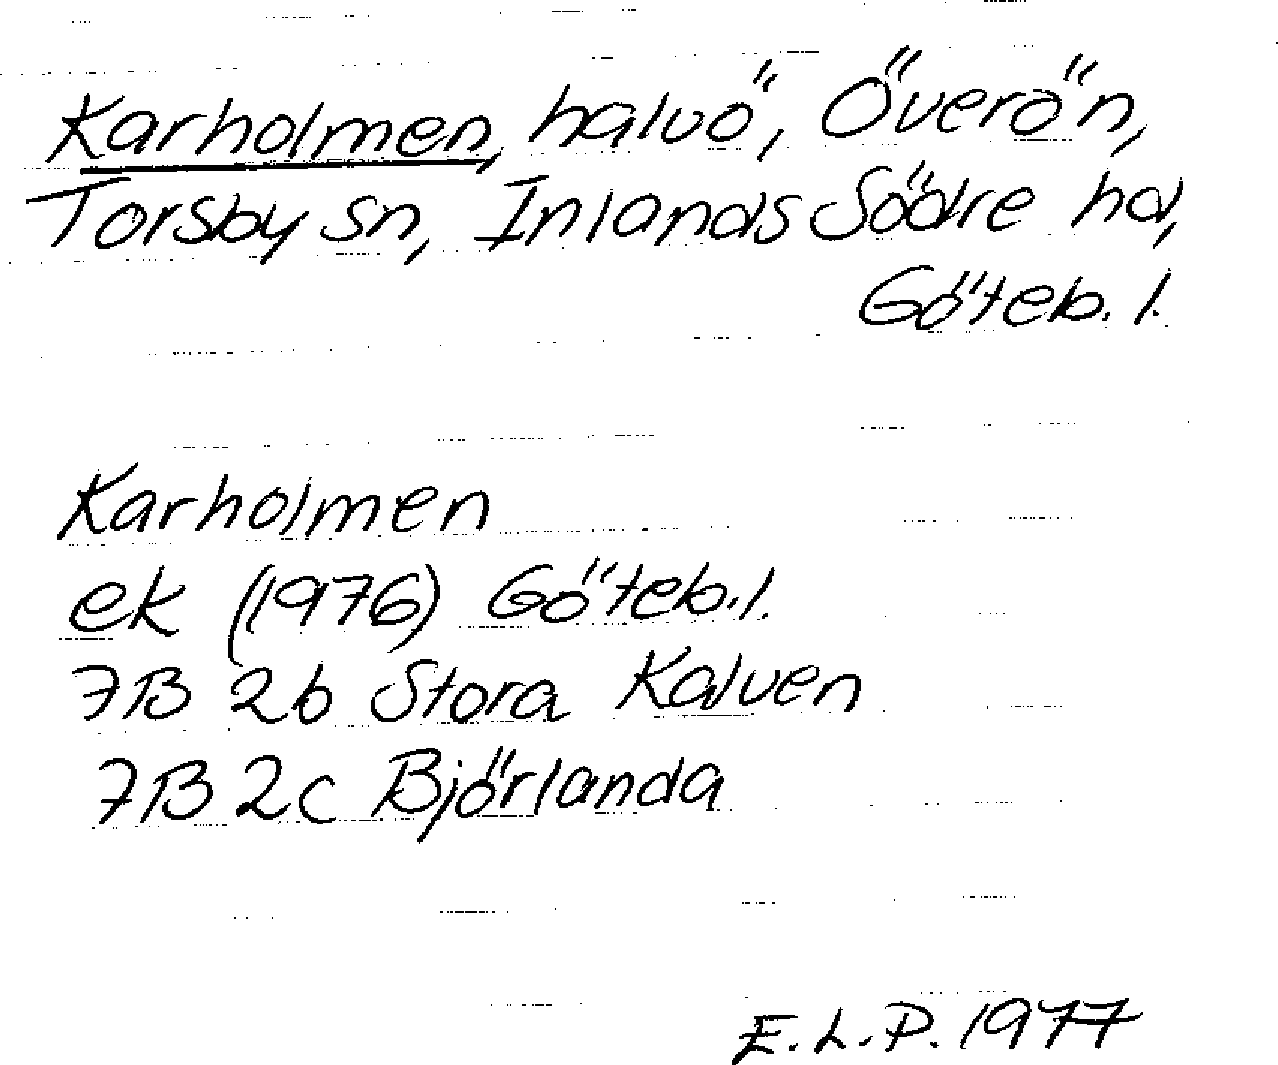 Karholmen, halvö, Överön,
Torsby sn, Inlands Södre hd,
Göteb. l.
Karholmen
ek (1976) Göteb. l.
7B 2b Stora Kalven
7B 2c Björlanda
E. L. P. 1977